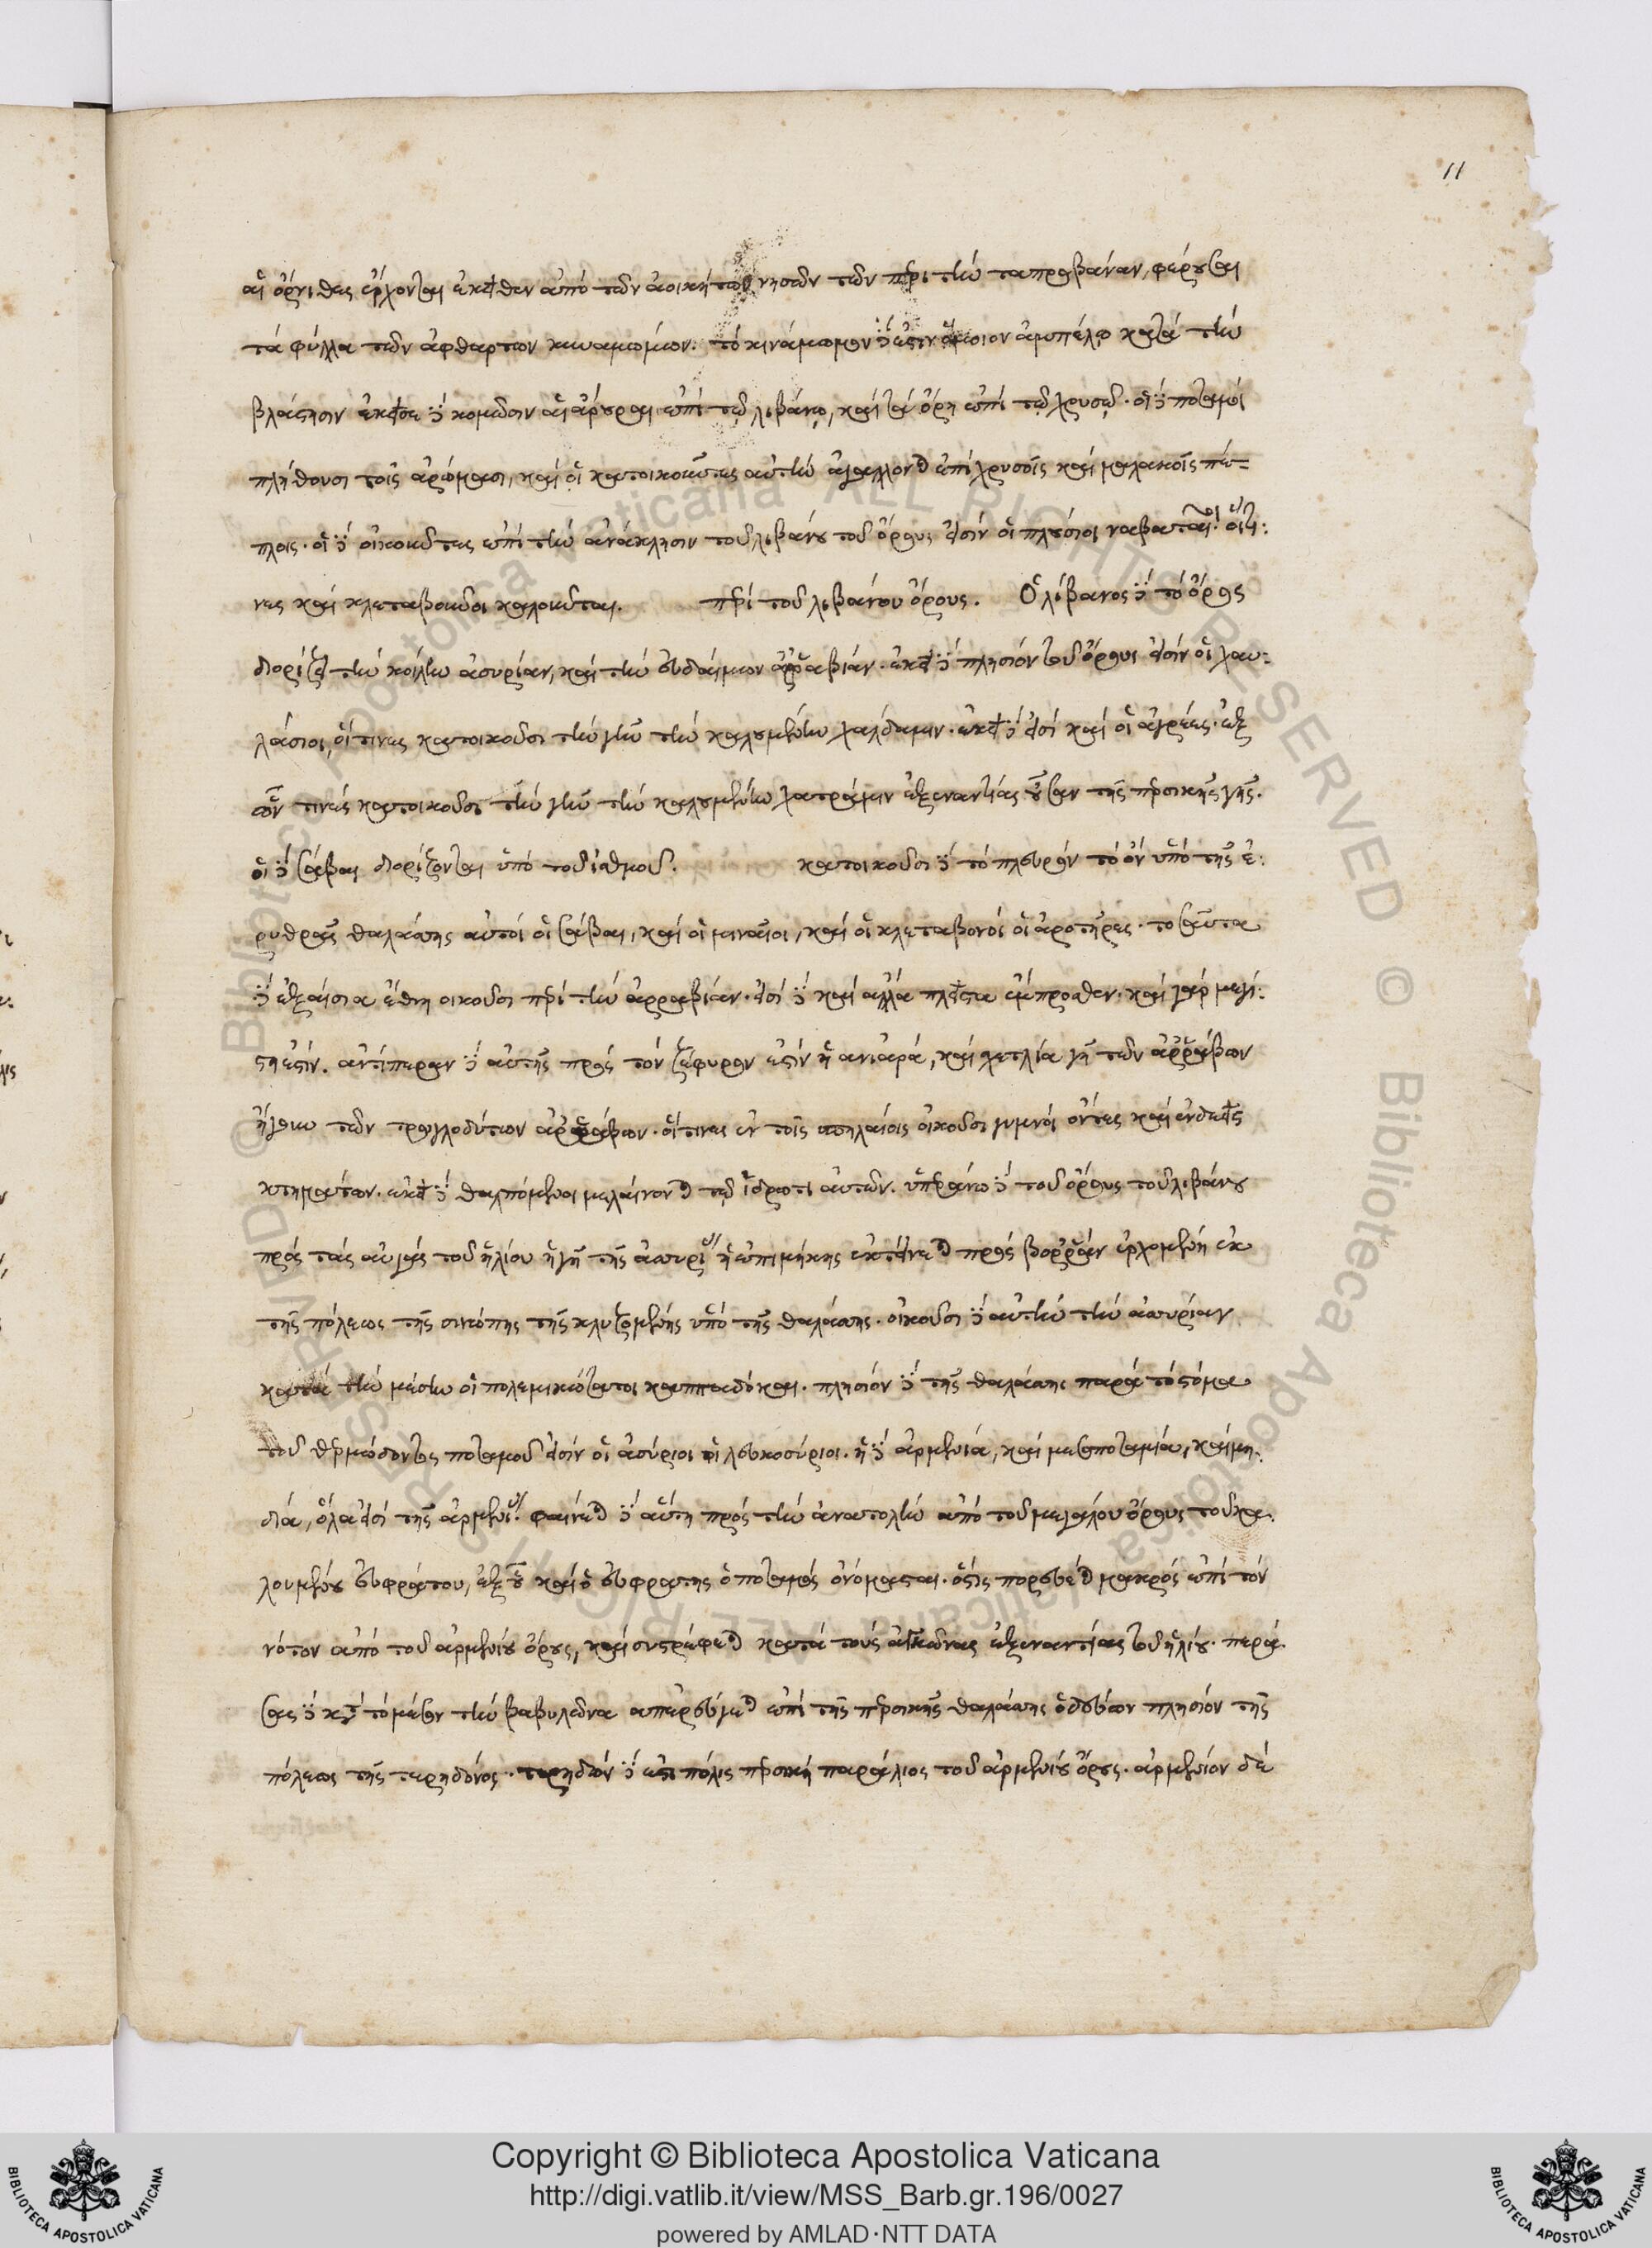 11
αἱ ὄρνιθες ἔρχονται ἐκεῖθεν ἀπὸ τῶν ἀοικήτων νησῶν τῶν περὶ τὴν ταπροβάναν, φέρουσαι
τὰ φύλλα τῶν ἀφθάρτων κιναμώμων. τὸ κινάμωμον δέ ἐστιν ὅμοιον ἀμπέλῳ κατὰ τὴν
βλάστησιν ἐκεῖσε δὲ κομῶσιν αἱ ἄρουραι ἐπὶ τῷ λιβάνῳ, καὶ τὰ ὄρη ἐπὶ τῷ χρυσῷ. οἱ δὲ ποταμοὶ
πλήθουσι τοῖς ἀρώμασι, καὶ οἱ κατοικοῦντες αὐτὴν ἀγάλλονται ἐπὶ χρυσοῖς καὶ μαλακοῖς πέ-
πλοις. οἱ δὲ οἰκοῦντες ἐπὶ τὴν ἀνάκλησιν τοῦ λιβάνου τοῦ ὄρους εἰσὶν οἱ πλούσιοι ναβαταῖοι. οἵτι-
νες καὶ κλεταβοῦδοι καλοῦνται. περὶ τοῦ λιβάνου ὄρους. Ὁ λίβανος δὲ τὸ ὄρος
διορίζει τὴν κοίλην ἀσυρίαν, καὶ τὴν εὐδαίμονα ἀῤῥαβίαν. ἐκεῖ δὲ πλησίον τοῦ ὄρους εἰσὶν οἱ χαυ-
λάσιοι, οἵτινες κατοικοῦσι τὴν γῆν τὴν καλουμένην χαλδαμιν. ἐκεῖ δέ εἰσι καὶ οἱ ἀγρέες. ἐξ
ὧν τινὲς κατοικοῦσι τὴν γῆν τὴν καλουμένην χατράμιν ἐξεναντίας οὖσαν τῆς περσικῆς γῆς.
οἱ δὲ σάβαι διορίζονται ὑπὸ τοῦ ἰσθμοῦ. κατοικοῦσι δὲ τὸ πλευρὸν τὸ ὂν ὑπὸ τῆς ἐ-
ρυθρᾶς θαλάσσης αὐτοὶ οἱ σάβαι, καὶ οἱ μιναῖοι, καὶ οἱ κλεταβονοὶ οἱ ἀροτῆρες. τοσαῦτα
δὲ ἐξαίσια ἔθνη οἰκοῦσι περὶ τὴν ἀρραβίαν. εἰσὶ δὲ καὶ ἄλλα πλεῖστα ἔμπροσθεν. καὶ γὰρ μεγί-
στη ἐστίν. ἀντίπεραν δὲ αὐτῆς πρὸς τὸν ζέφυρον ἐστὶν ἡ ἀνιαρὰ, καὶ σχετλία γῆ τῶν ἀῤῥάβων
ἤγουν τῶν τρωγλοδύτων ἀῤῥάβων. οἵτινες ἐν τοῖς σπηλαίοις οἰκοῦσι γυμνοὶ ὄντες καὶ ἐνδεεῖς
κτημάτων. ἐκεῖ δὲ θαλπόμενοι μελαίνονται τῷ ἱδρῶτι αὐτῶν. ὑπεράνω δὲ τοῦ ὄρους τοῦ λιβάνου
πρὸς τὰς αὐγὰς τοῦ ἡλίου ἡ γῆ τῆς ἀσσυρίας ἡ ἐπιμήκης ἐκτείνεται πρὸς βοῤῥᾶν ἐρχομένη ἐκ
τῆς πόλεως τῆς σινόπης τῆς κλυζομένης ὑπὸ τῆς θαλάσσης. οἰκοῦσι δὲ αὐτὴν τὴν ἀσσυρίαν
κατὰ τὴν μέσην οἱ πολεμικώτατοι καππαδόκαι. πλησίον δὲ τῆς θαλάσσης παρὰ τὸ στόμα
τοῦ θερμώδοντος ποταμοῦ εἰσὶν οἱ ἀσύριοι οἱ λευκοσύριοι. ἡ δὲ ἀρμενιά, καὶ μεσοποταμία, καὶ μη-
διά, ὅλα εἰσὶ τῆς ἀρμενίας. φαίνεται δὲ αὕτη πρὸς τὴν ἀνατολὴν ἀπὸ τοῦ μεγάλου ὄρους τοῦ κα-
λουμένου εὐφράτου, ἐξ οὗ καὶ ὁ εὐφράτης ὁ ποταμὸς ὀνόμασται. ὅστις πορεύεται μακρὸς ἐπὶ τὸν
νότον ἀπὸ τοῦ ἀρμενίου ὄρους, καὶ συστρέφεται κατὰ τοὺς ἀγκῶνας ἐξεναντίας τοῦ ἡλίου. περά-
σας δὲ κατὰ τὸ μέσον τὴν βαβυλῶνα ἀπερεύγεται ἐπὶ τῆς περσικῆς θαλάσσης ὁδεύων πλησίον τῆς
πόλεως τῆς τερηδόνος. τερηδὼν δέ ἐστι πόλις περσικὴ παράλιος τοῦ ἀρμενίου ὄρους. ἀρμενίον δὲ
Copyright © Biblioteca Apostolica Vaticana
http://digi.vatlib.it/view/MSS_Barb.gr.196/0027
powered by AMLAD·NTT DATA